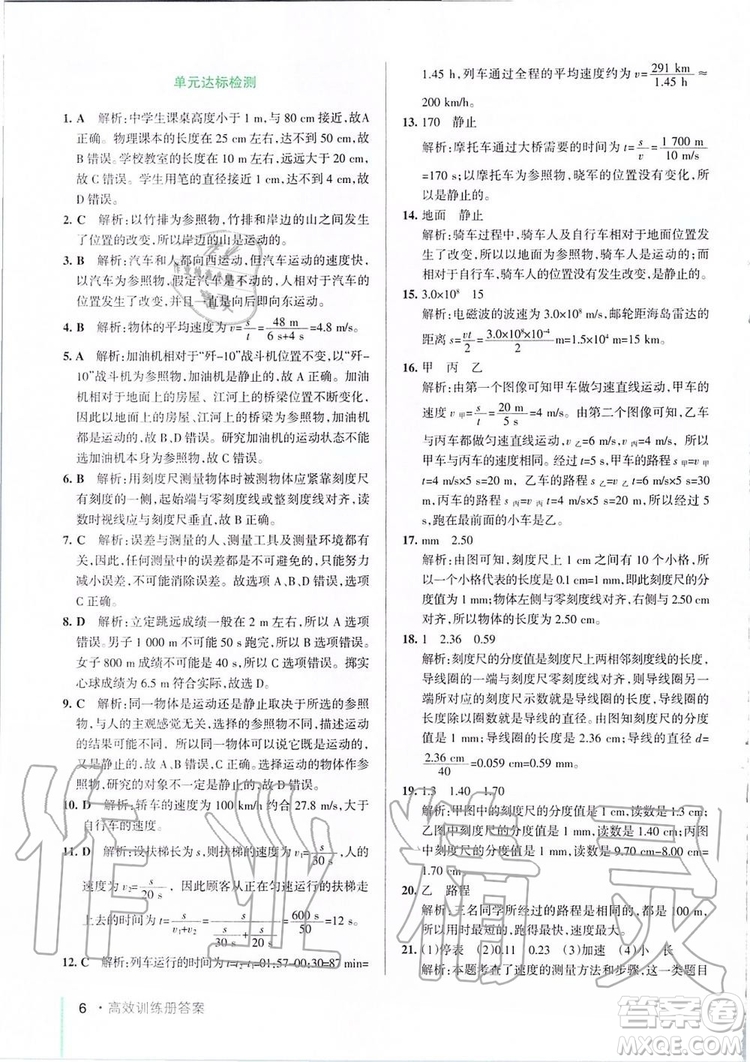 单元达标检测
1. A　解析:中学生课桌高度小于 1 m,与 80 cm 接近,故A
正确。物理课本的长度在 25 cm 左右,不到 50 cm,故
B 错误。学校教室的长度在 10 m 左右,远远大于
20 cm,故 C 错误。学生用笔的直径接近 1 cm,故 D
错误。
2. C　解析:以竹排为参照物,竹排和岸边的山之间发生
了位置的改变,所以岸边的山是运动的。
3. B　解析:汽车和人都向西运动,但汽车运动的速度快,
以汽车为参照物,假定汽车不动,人相对于汽车的位
置发生了改变,并且一直落后即向东运动。
4. B　解析:物体的平均速度为 v=s/t=48 m/(6 s+4 s)=4.8 m/s。
5. A　解析:加油机相对于“歼-10”战斗机位置不变,以“歼-
10”战斗机为参照物,加油机是静止的,故 A 正确。
以地面上的房屋、江河上的桥梁为参照物,加油机相
对于地面上的房屋、江河上的桥梁不断变化,加油机
都是运动的,故 B、D 错误。研究加油机的运动状态不能
选加油机本身为参照物,故 C 错误。
6. B　解析:用刻度尺测量物体时被测物体应紧靠刻度尺
有刻度的一侧,起始端与零刻度线或整刻度线对齐,读
数时视线应与刻度尺垂直,故 B 正确。
7. C　解析:进行测量的人、测量工具及测量环境都有关,
在任何测量中误差都是不可避免的,只能尽可能努力
减小误差,不可能消除误差。故选项 A、B、D 错误,选项
C 正确。
8. D　解析:立定跳远成绩一般在 2 m 左右,所以 A 选项
错误。男子 1 000 m 不可能 50 s 跑完,所以 B 选项错误。
女子 800 m 成绩不可能是 40 s,所以 C 选项错误。掷实
心球成绩为 6.5 m 符合实际,故 D 选项正确。
9. C　解析:同一物体是运动还是静止取决于所选的参照
物,与人的主观感觉无关。选择不同的参照物,描述运动
的结果可能不同,同一个物体可能既是运动的,
又是静止的。研究物体运动,必须选择合适的参照
物。研究的对象不一定是运动的物体。故 C 错误。
10. D　解析:轿车的速度为 100 km/h≈27.8 m/s,大于
自行车的速度。
11. D　解析:设扶梯长为 s,则扶梯的速度为 v₁=s/30 s,人的
速度为 v₂=s/20 s,因此顾客从正在匀速运行的扶梯走
上去的时间为 t=s/(v₁+v₂)=s/(s/30 s+s/20 s)=600 s/50=12 s。
12. C　解析:列车运行的时间为 t=01:57-00:30=87 min=
1.45 h,列车通过全程的平均速度约为 v=s/t=291 km/1.45 h≈
200 km/h。
13. 170　静止
解析:摩托车通过大桥需要的时间为 t=s/v=1 700 m/10 m/s
=170 s;以摩托车为参照物,晓军的位置没有变化,所
以是静止的。
14. 地面　静止
解析:骑车过程中,骑车人及自行车相对于地面的位
置发生了变化,所以以地面为参照物,骑车人是运动的;
相对于自行车,骑车人的位置没有变化,所以是静止的。
15. 3.0×10⁸　15
解析:电磁波的速度为 3.0×10⁸ m/s,邮轮距海岛雷达的
距离 s=vt/2=3.0×10⁸ m/s×1×10⁻⁴ s/2=1.5×10⁴ m=15 km。
16. 甲　丙　乙
解析:由第一个图像可知甲车做匀速直线运动,甲车的
速度 v甲=s/t=20 m/5 s=4 m/s。由第二个图像可知,乙车
与丙车都做匀速直线运动,v乙=6 m/s,v丙=4 m/s,所以
甲车与丙车的速度相等。甲车的路程 s甲=v甲t=
4 m/s×5 s=20 m,乙车的路程 s乙=v乙t=6 m/s×5 s=
30 m,丙车的路程 s丙=v丙t=4 m/s×5 s=20 m;所以 5 s
后,跑在最前面的小车是乙车。
17. mm　2.50
解析:由图可知,刻度尺上 1 cm 之间有 10 个小格,所
以一个小格代表的长度是 0.1 cm=1 mm,即此刻度尺的
分度值为 1 mm;物体左侧与零刻度线对齐,右侧与 2.50 cm
对齐,所以物体的长度为 2.50 cm。
18. 1　2.36　0.59
解析:刻度尺的分度值是尺上两相邻刻度线的长度,
导线圈的一端与刻度尺零刻度线对齐,导线圈的另一
端所对应的刻度尺示数就是导线圈的长度;导线圈的
长度除以圈数就是导线的直径,导线的直径等于
导线圈的长度除以圈数,导线圈的周长 D=2.36 cm,则 d
=2.36 cm/40=0.059 cm=0.59 mm。
19. 1.3　1.40　1.70
解析:甲图中的刻度尺的分度值为 1 cm,读数是 1.3 cm;
乙图中刻度尺的分度值是 1 mm,读数是 1.40 cm;丙图
中刻度尺的分度值是 1 mm,读数是 9.70 cm-8.00 cm=
1.70 cm。
20. 乙　路程
解析:三名同学所走的路程是相同的,乙所用
时间最短,所以乙的平均速度最大。
21. (1)停表　(2)0.11　0.23　(3)加速　(4)小　长
解析:本题考查了速度的测量方法和步骤。这一类题
6 · 高效训练册答案
作业精灵
答案圈
MXQE.COM